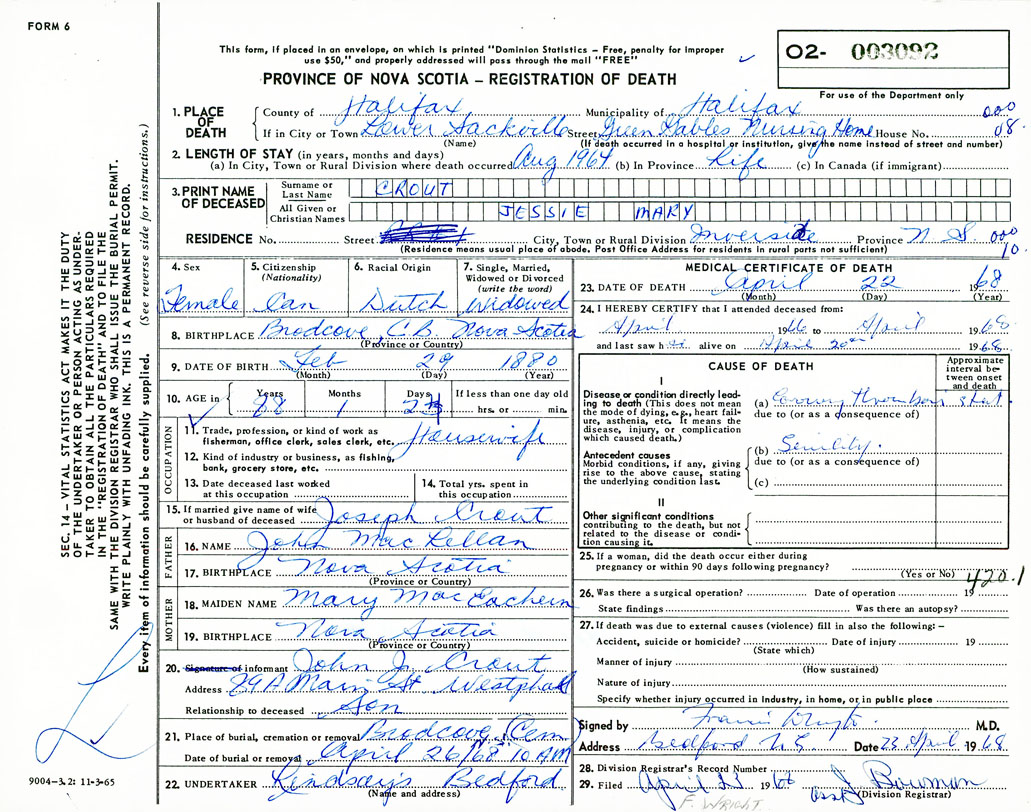 FORM 6
This form, if placed in an envelope, on which is printed "Dominion Statistics – Free, penalty for improper
use $50," and properly addressed will pass through the mail "FREE"
PROVINCE OF NOVA SCOTIA – REGISTRATION OF DEATH
02- 003092
For use of the Department only
1. PLACE OF DEATH
County of Halifax Municipality of Halifax 000
If in City or Town Lower Sackville Street Green Gables Nursing Home House No. 08.
(Name) (If death occurred in a hospital or institution, give the name instead of street and number)
2. LENGTH OF STAY (in years, months and days)
(a) In City, Town or Rural Division where death occurred Aug 1964 (b) In Province Life (c) In Canada (if immigrant)
3. PRINT NAME OF DECEASED
Surname or Last Name CROUT
All Given or Christian Names JESSIE MARY
RESIDENCE No. Street City, Town or Rural Division Inverside Province N S. 000
(Residence means usual place of abode. Post Office Address for residents in rural parts not sufficient) 10.
4. Sex Female
5. Citizenship (Nationality) Can
6. Racial Origin Dutch
7. Single, Married, Widowed or Divorced (write the word) Widowed
8. BIRTHPLACE Brodcove, C.B. Nova Scotia
(Province or Country)
9. DATE OF BIRTH Feb 29 1880
(Month) (Day) (Year)
10. AGE in Years 88 Months 1 Days If less than one day old hrs. or min.
OCCUPATION
11. Trade, profession, or kind of work as fisherman, office clerk, sales clerk, etc. Housewife
12. Kind of industry or business, as fishing, bank, grocery store, etc.
13. Date deceased last worked at this occupation
14. Total yrs. spent in this occupation
15. If married give name of wife or husband of deceased Joseph Crout
FATHER
16. NAME John MacLellan
17. BIRTHPLACE Nova Scotia
(Province or Country)
MOTHER
18. MAIDEN NAME Mary MacEachern
19. BIRTHPLACE Nova Scotia
(Province or Country)
20. Signature of informant John J. Crout
Address 89A Main St Westphal
Relationship to deceased Son
21. Place of burial, cremation or removal Brodcove Cem
Date of burial or removal April 26/68 10 AM
22. UNDERTAKER Lindsay's Bedford
(Name and address)
MEDICAL CERTIFICATE OF DEATH
23. DATE OF DEATH April 22 1968
(Month) (Day) (Year)
24. I HEREBY CERTIFY that I attended deceased from:
April 1966 to April 1968
and last saw h alive on April 20th 1968
CAUSE OF DEATH
Approximate interval between onset and death
I
Disease or condition directly leading to death (This does not mean the mode of dying, e.g., heart failure, asthenia, etc. It means the disease, injury, or complication which caused death.)
(a) Coronary Thrombosis
due to (or as a consequence of)
Antecedent causes
Morbid conditions, if any, giving rise to the above cause, stating the underlying condition last.
(b) Senility.
due to (or as a consequence of)
(c)
II
Other significant conditions
contributing to the death, but not related to the disease or condition causing it.
25. If a woman, did the death occur either during pregnancy or within 90 days following pregnancy?
(Yes or No) 420.1
26. Was there a surgical operation? Date of operation 19
State findings Was there an autopsy?
27. If death was due to external causes (violence) fill in also the following: –
Accident, suicide or homicide? Date of injury 19
(State which)
Manner of injury
(How sustained)
Nature of injury
Specify whether injury occurred in industry, in home, or in public place
Signed by Francis Wright M.D.
Address Bedford N.S. Date 23 April 1968
28. Division Registrar's Record Number
29. Filed April 23 1968 J Bowman
(Division Registrar)
F. WRIGHT
SEC. 14 – VITAL STATISTICS ACT MAKES IT THE DUTY
OF THE UNDERTAKER OR PERSON ACTING AS UNDER-
TAKER TO OBTAIN ALL THE PARTICULARS REQUIRED
IN THE "REGISTRATION OF DEATH" AND TO FILE THE
SAME WITH THE DIVISION REGISTRAR WHO SHALL ISSUE THE BURIAL PERMIT.
WRITE PLAINLY WITH UNFADING INK. THIS IS A PERMANENT RECORD.
Every item of information should be carefully supplied. (See reverse side for instructions.)
9004-3.2: 11-3-65